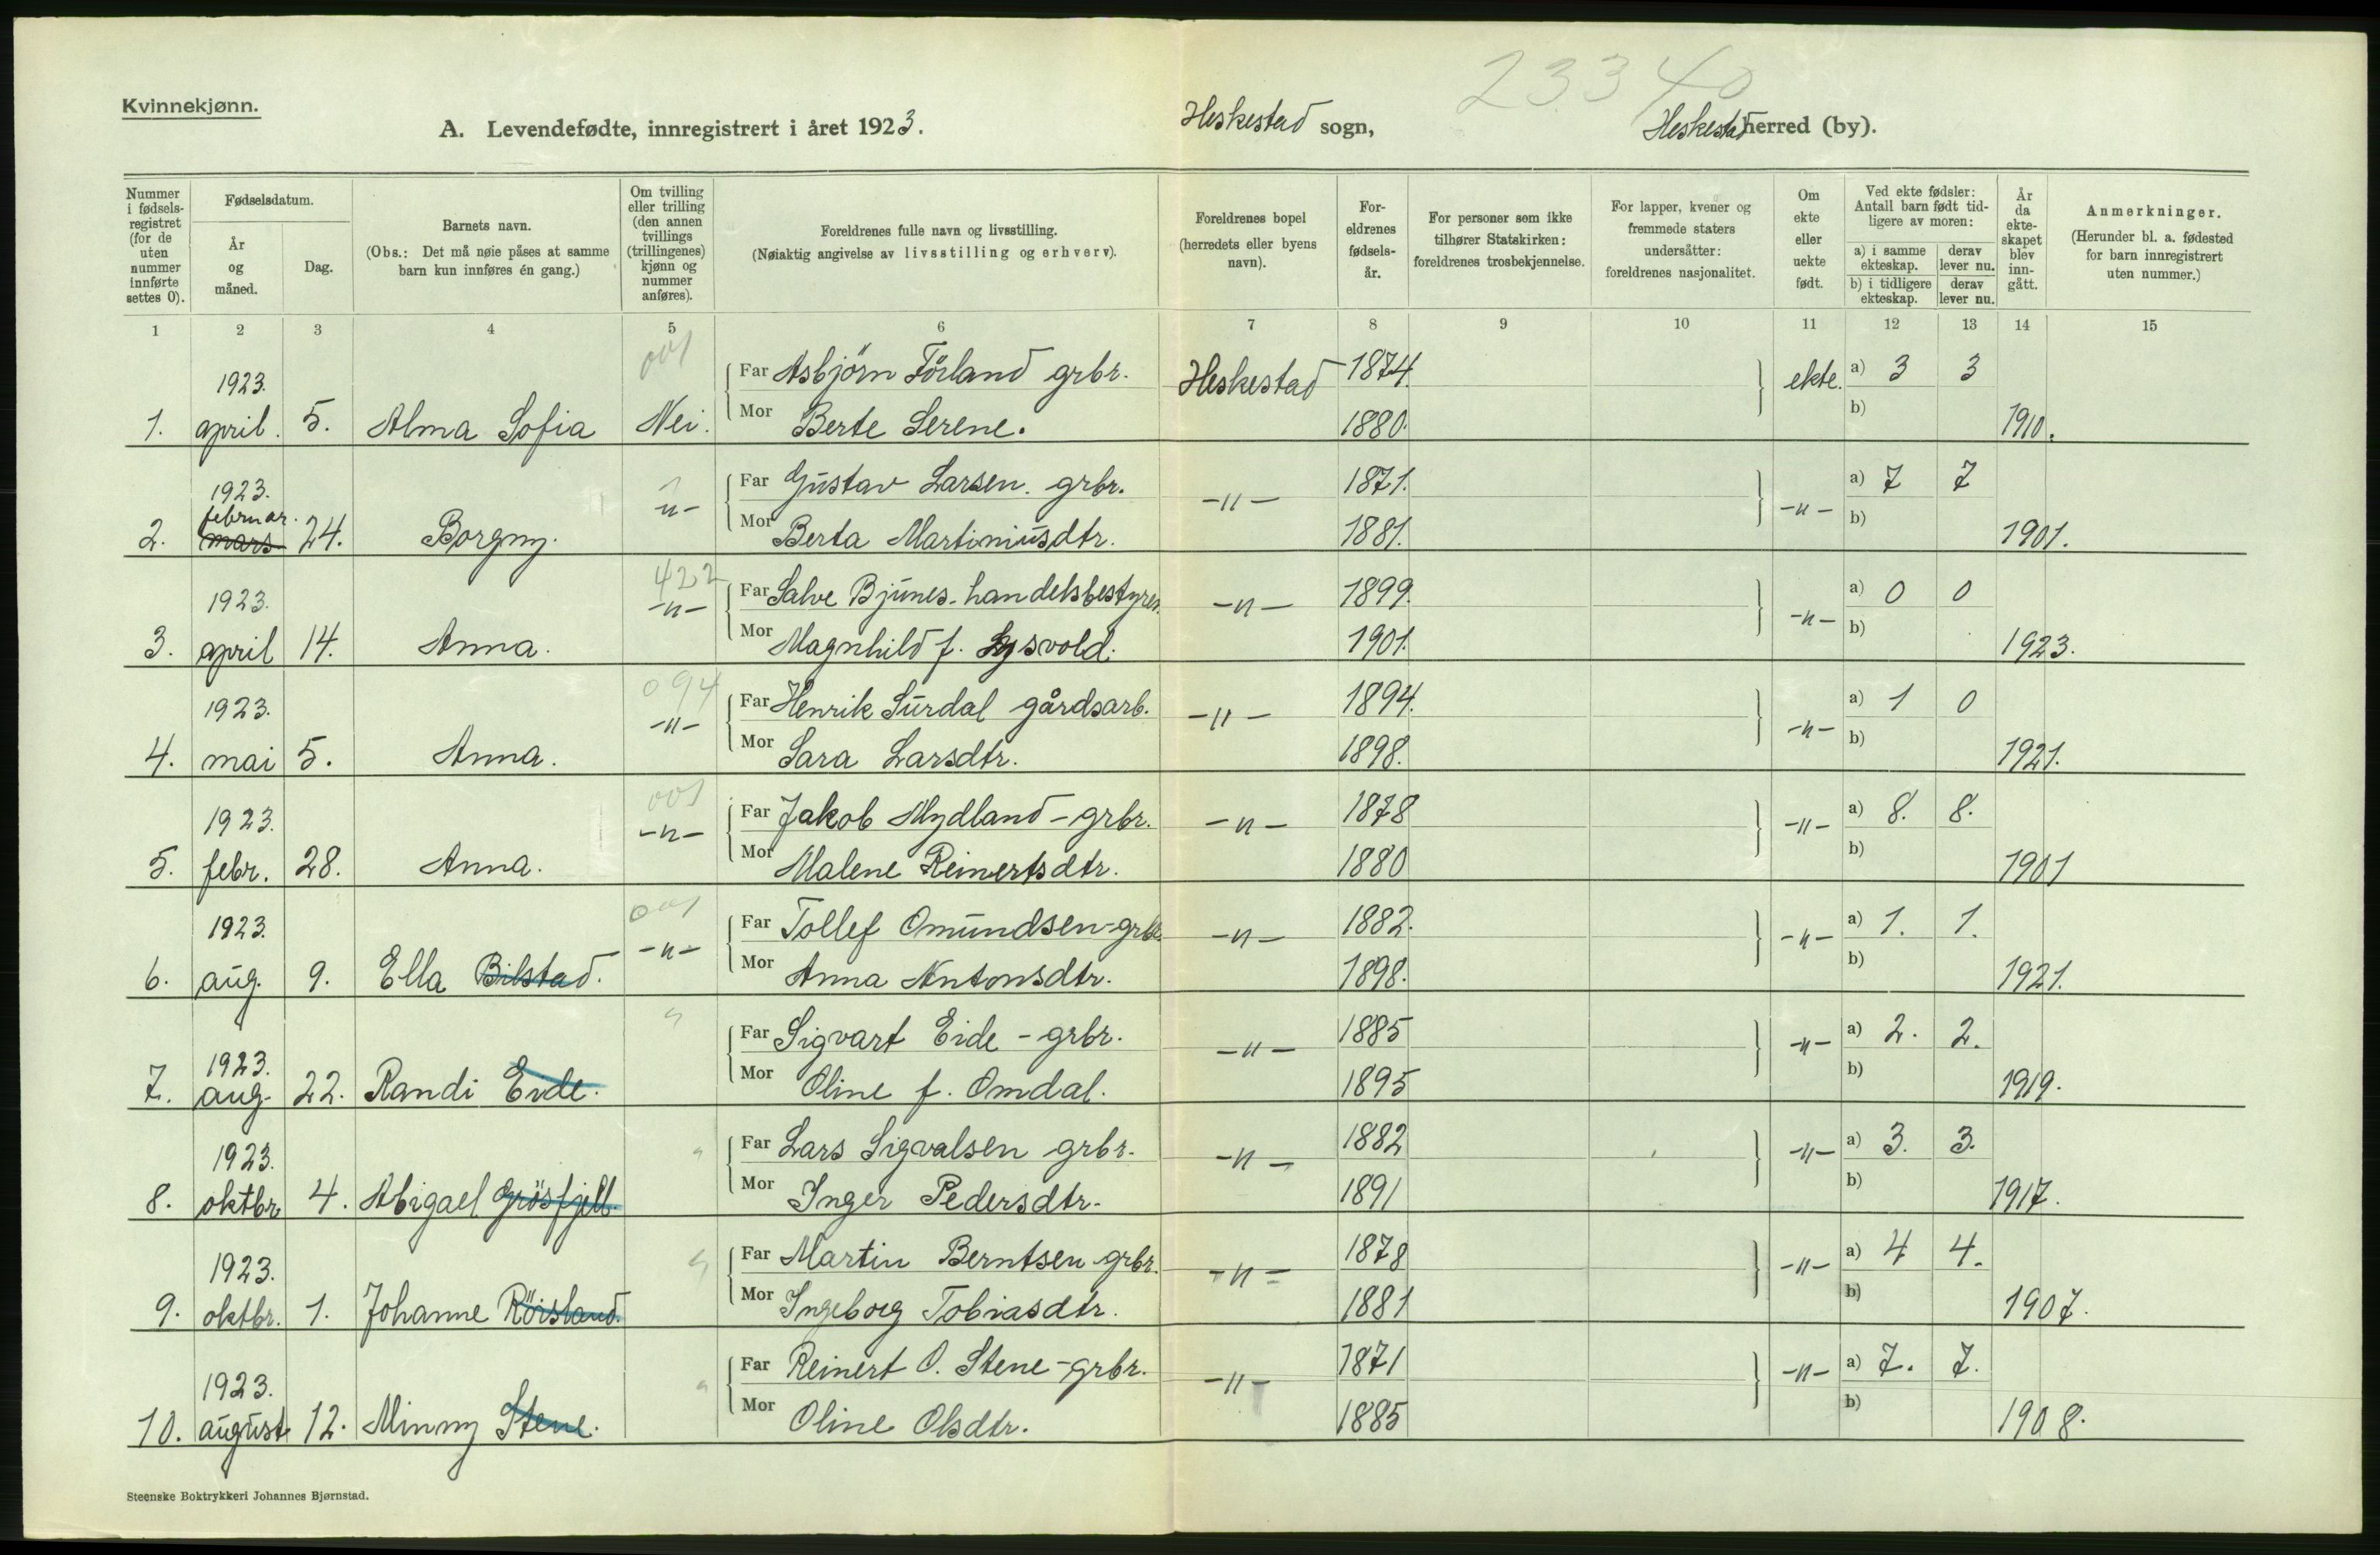 Kvinnekjønn.
A. Levendefødte, innregistrert i året 1923.
Heskestad sogn,
23340
Heskestad herred (by).
Nummer i fødselsregistret (for de uten nummer innførte settes 0).
Fødselsdatum.
År og måned.
Dag.
Barnets navn.
(Obs.: Det må nøie påses at samme barn kun innføres én gang.)
Om tvilling eller trilling (den annen tvillings (trillingenes) kjønn og nummer anføres).
Foreldrenes fulle navn og livsstilling.
(Nøiaktig angivelse av livsstilling og erhverv).
Foreldrenes bopel (herredets eller byens navn).
Foreldrenes fødselsår.
For personer som ikke tilhører Statskirken: foreldrenes trosbekjennelse.
For lapper, kvener og fremmede staters undersåtter: foreldrenes nasjonalitet.
Om ekte eller uekte født.
Ved ekte fødsler: Antall barn født tidligere av moren:
a) i samme ekteskap.
derav lever nu.
b) i tidligere ekteskap.
derav lever nu.
År da ekteskapet blev inngått.
Anmerkninger.
(Herunder bl. a. fødested for barn innregistrert uten nummer.)
1 2 3 4 5 6 7 8 9 10 11 12 13 14 15
001
1923. Far Asbjörn Förland grbr. Heskestad 1874. ekte. a) 3 3
1. april. 5. Alma Sofia Nei. Mor Berte Serene. 1880. b) 1910.
1923. -"- Far Gustav Larsen. grbr. -"- 1871. -"- a) 7 7
februar.
2. mars 24. Borgny. Mor Berta Martiniusdtr. 1881. b) 1901.
422
1923. -"- Far Salve Bjunes - handelsbestyrer. -"- 1899. -"- a) 0 0
3. april 14. Anna. Mor Magnhild f. Lysvold. 1901. b) 1923.
094
1923. -"- Far Henrik Surdal gårdsarb. -"- 1894. -"- a) 1 0
4. mai 5. Anna. Mor Sara Larsdtr. 1898. b) 1921.
001
1923. -"- Far Jakob Mydland - grbr. -"- 1878 -"- a) 8. 8.
5. febr. 28. Anna. Mor Malene Reinertsdtr. 1880 b) 1901
001
1923. -"- Far Tollef Omundsen - grbr. -"- 1882. -"- a) 1. 1.
6. aug. 9. Ella Bilstad. Mor Anna Antonsdtr. 1898. b) 1921.
1923. Far Sigvart Eide - grbr. -"- 1885 -"- a) 2. 2.
7. aug. 22. Randi Eide. Mor Oline f. Omdal. 1895 b) 1919.
1923. Far Lars Sigvalsen grbr. -"- 1882 -"- a) 3. 3.
8. oktbr 4. Abigael Grösfjell. Mor Inger Pedersdtr. 1891 b) 1917.
1923. Far Martin Berntsen grbr. -"- 1878 -"- a) 4 4.
9. oktbr. 1. Johanne Röisland. Mor Ingeborg Tobiasdtr. 1881 b) 1907.
1923. Far Reinert O. Stene - grbr. -"- 1871 -"- a) 7. 7.
10. august 12. Minny Stene. Mor Oline Olsdtr. 1885 b) 1908.
Steenske Boktrykkeri Johannes Bjørnstad.